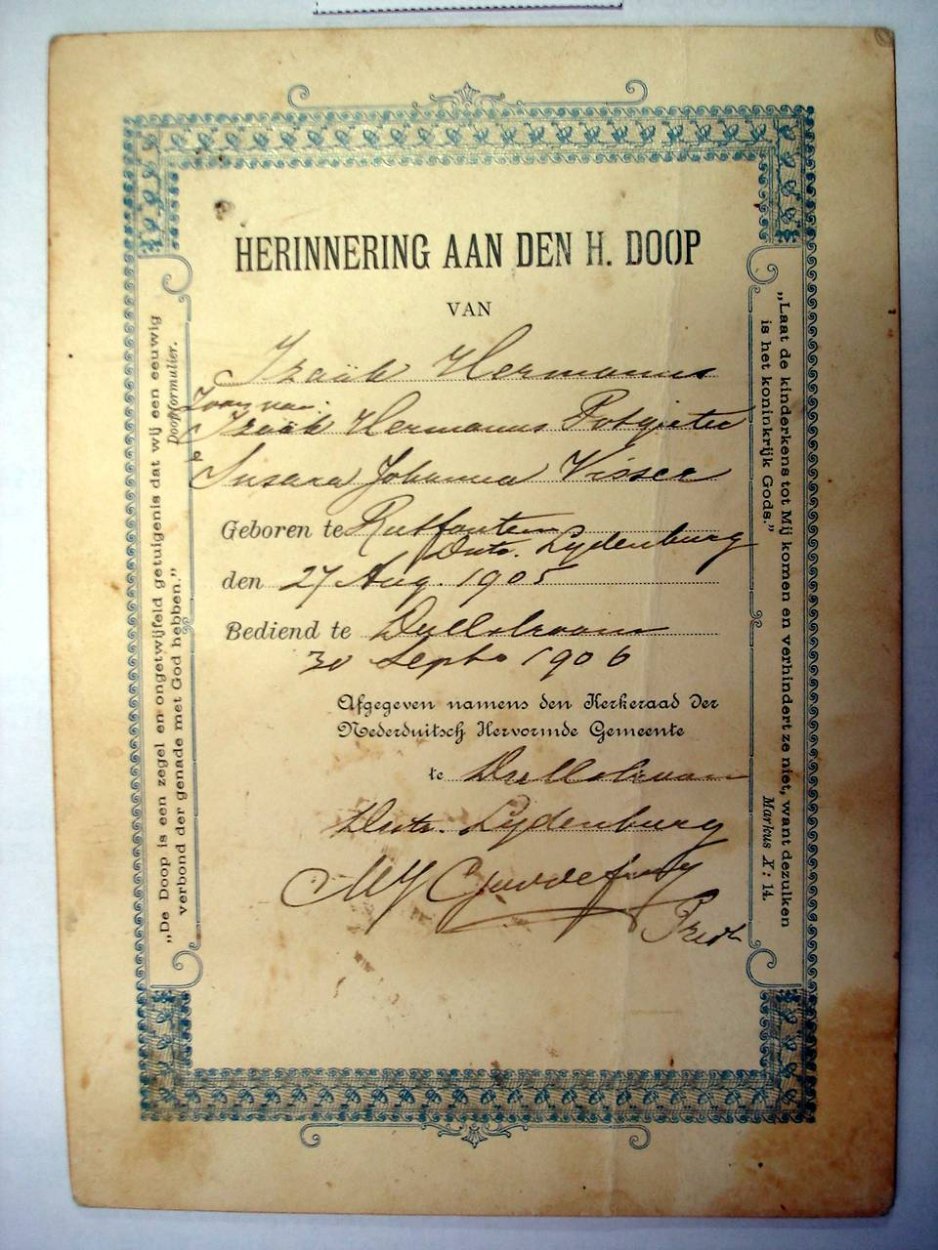 HERINNERING AAN DEN H. DOOP
VAN
Izaäk Hermanus
Zoon van
Izaäk Hermanus Potgieter
& Susara Johanna Visser
Geboren te Rietfontein
Distr. Lydenburg
den 27 Aug. 1905
Bediend te Dullstroom
30 Septb 1906
Afgegeven namens den Kerkeraad der
Nederduitsch Hervormde Gemeente
te Dullstroom
Distr. Lydenburg
M J Goddefroy
Pred.
„De Doop is een zegel en ongetwijfeld getuigenis dat wij een eeuwig
verbond der genade met God hebben.” Doopformulier.
„Laat de kinderkens tot Mij komen en verhindert ze niet, want dezulken
is het koninkrijk Gods.” Markus X: 14.